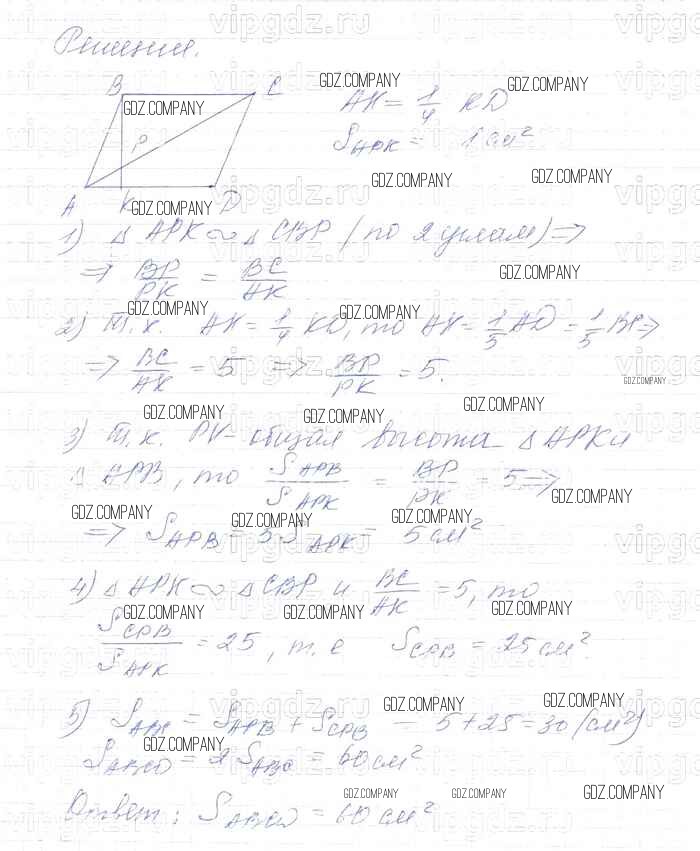 Решение.
B C
AK = 1/4 KD
P
S_APK = 1 см²
A K D
1) △ APK ∾ △ CBP (по 2 углам) ⇒
⇒ BP/PK = BC/AK
2) Т.к. AK = 1/4 KD, то AK = 1/5 AD = 1/5 BC ⇒
⇒ BC/AK = 5 ⇒ BP/PK = 5.
3) Т.к. общая высота △ APK и
△ APB, то S_APB/S_APK = BP/PK = 5 ⇒
⇒ S_APB = 5 S_APK = 5 см²
4) △ APK ∾ △ CBP и BC/AK = 5, то
S_CPB/S_APK = 25, т.е S_CPB = 25 см²
5) S_ABC = S_APB + S_CPB = 5 + 25 = 30 (см²)
S_ABCD = 2 S_ABC = 60 см²
Ответ: S_ABCD = 60 см²
GDZ.COMPANY
vipgdz.ru